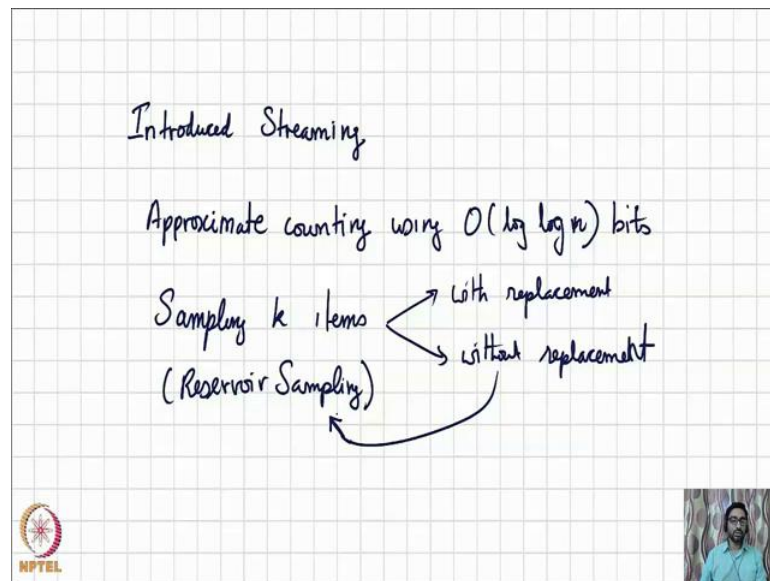 Introduced Streaming
Approximate counting using O(log log n) bits
Sampling k items
with replacement
without replacement
(Reservoir Sampling)
NPTEL